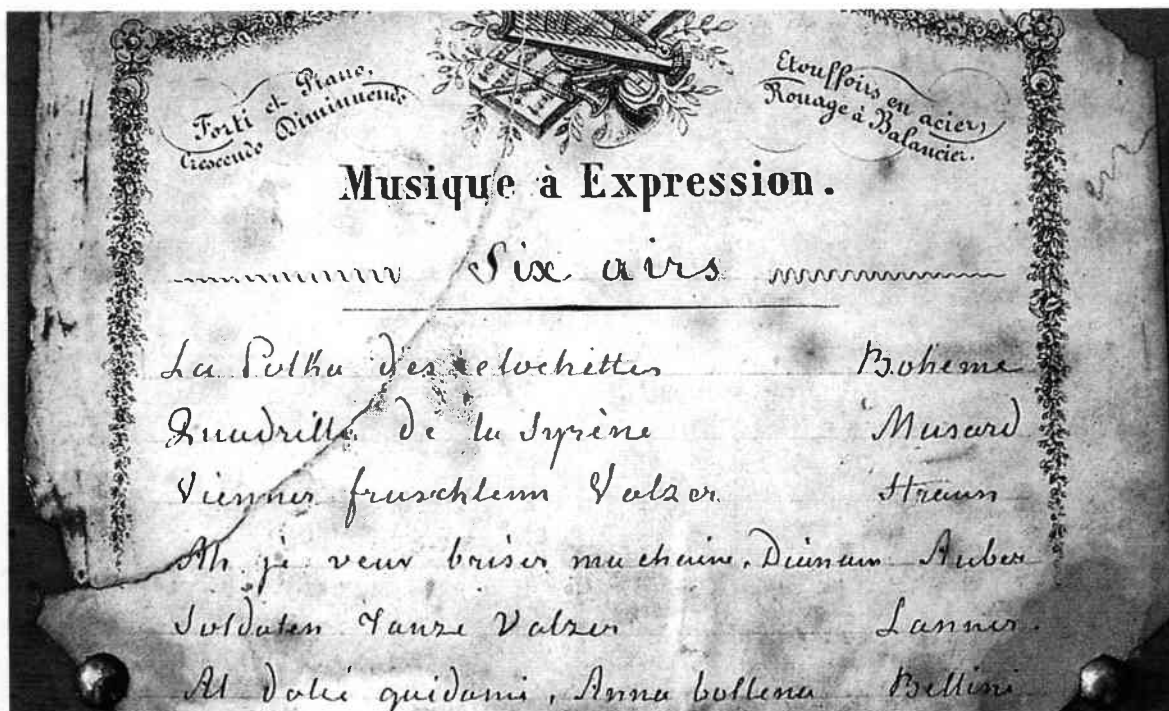 Forti et Piano,
Crescendo Diminuendo
Etouffoirs en acier,
Rouage à Balancier.
Musique à Expression.
Six airs
La Polka des clochettes Boheme
Quadrille de la Syrène Musard
Vienner fruschlenn Valzer Straun
Ah je veux briser ma chaine, Diamam Auber
Soldaten Tanze Valzer Lanner.
Al dolié guidami, Anna bollena Bellini